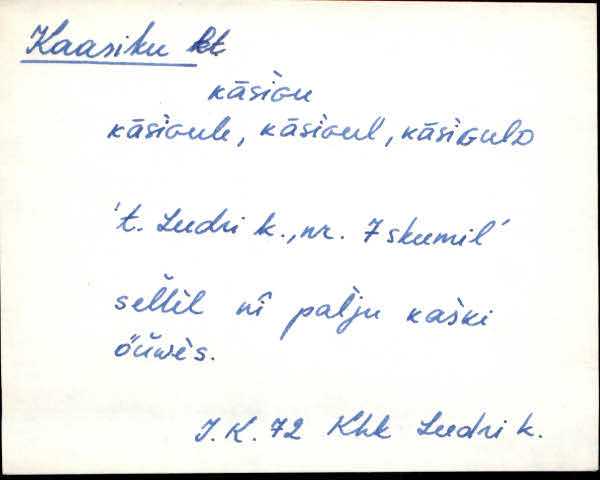 Kaasiku kt
kāsiGu
kāsiGulе, kāsiGul, kāsiGulD
't. Leedri k., nr. 7 skeemil'
sēllėl nî paľju kaśki
ȭũwės.
J. K. 72 Khk Leedri k.